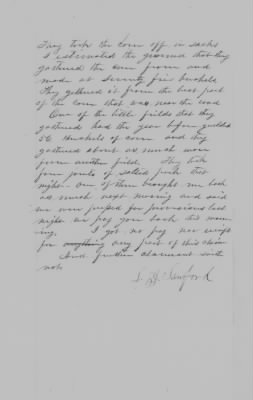 They took the corn off in sacks
I estimated the ground that they
gathered the corn from and
made at Seventy five bushels
They gathered it from the best part
of the corn that was near the road
One of the little fields that they
gathered had the year before yielded
56 bushels of corn and they
gathered about as much more
from another field. They took
four joints of salted pork that
night. One of them brought me back
as much next morning and said
we were pressed for provisions last
night we pay you back this morn
ing. I got no pay nor receipt
for any part of this claim
And further claimant saith
not
Sanford